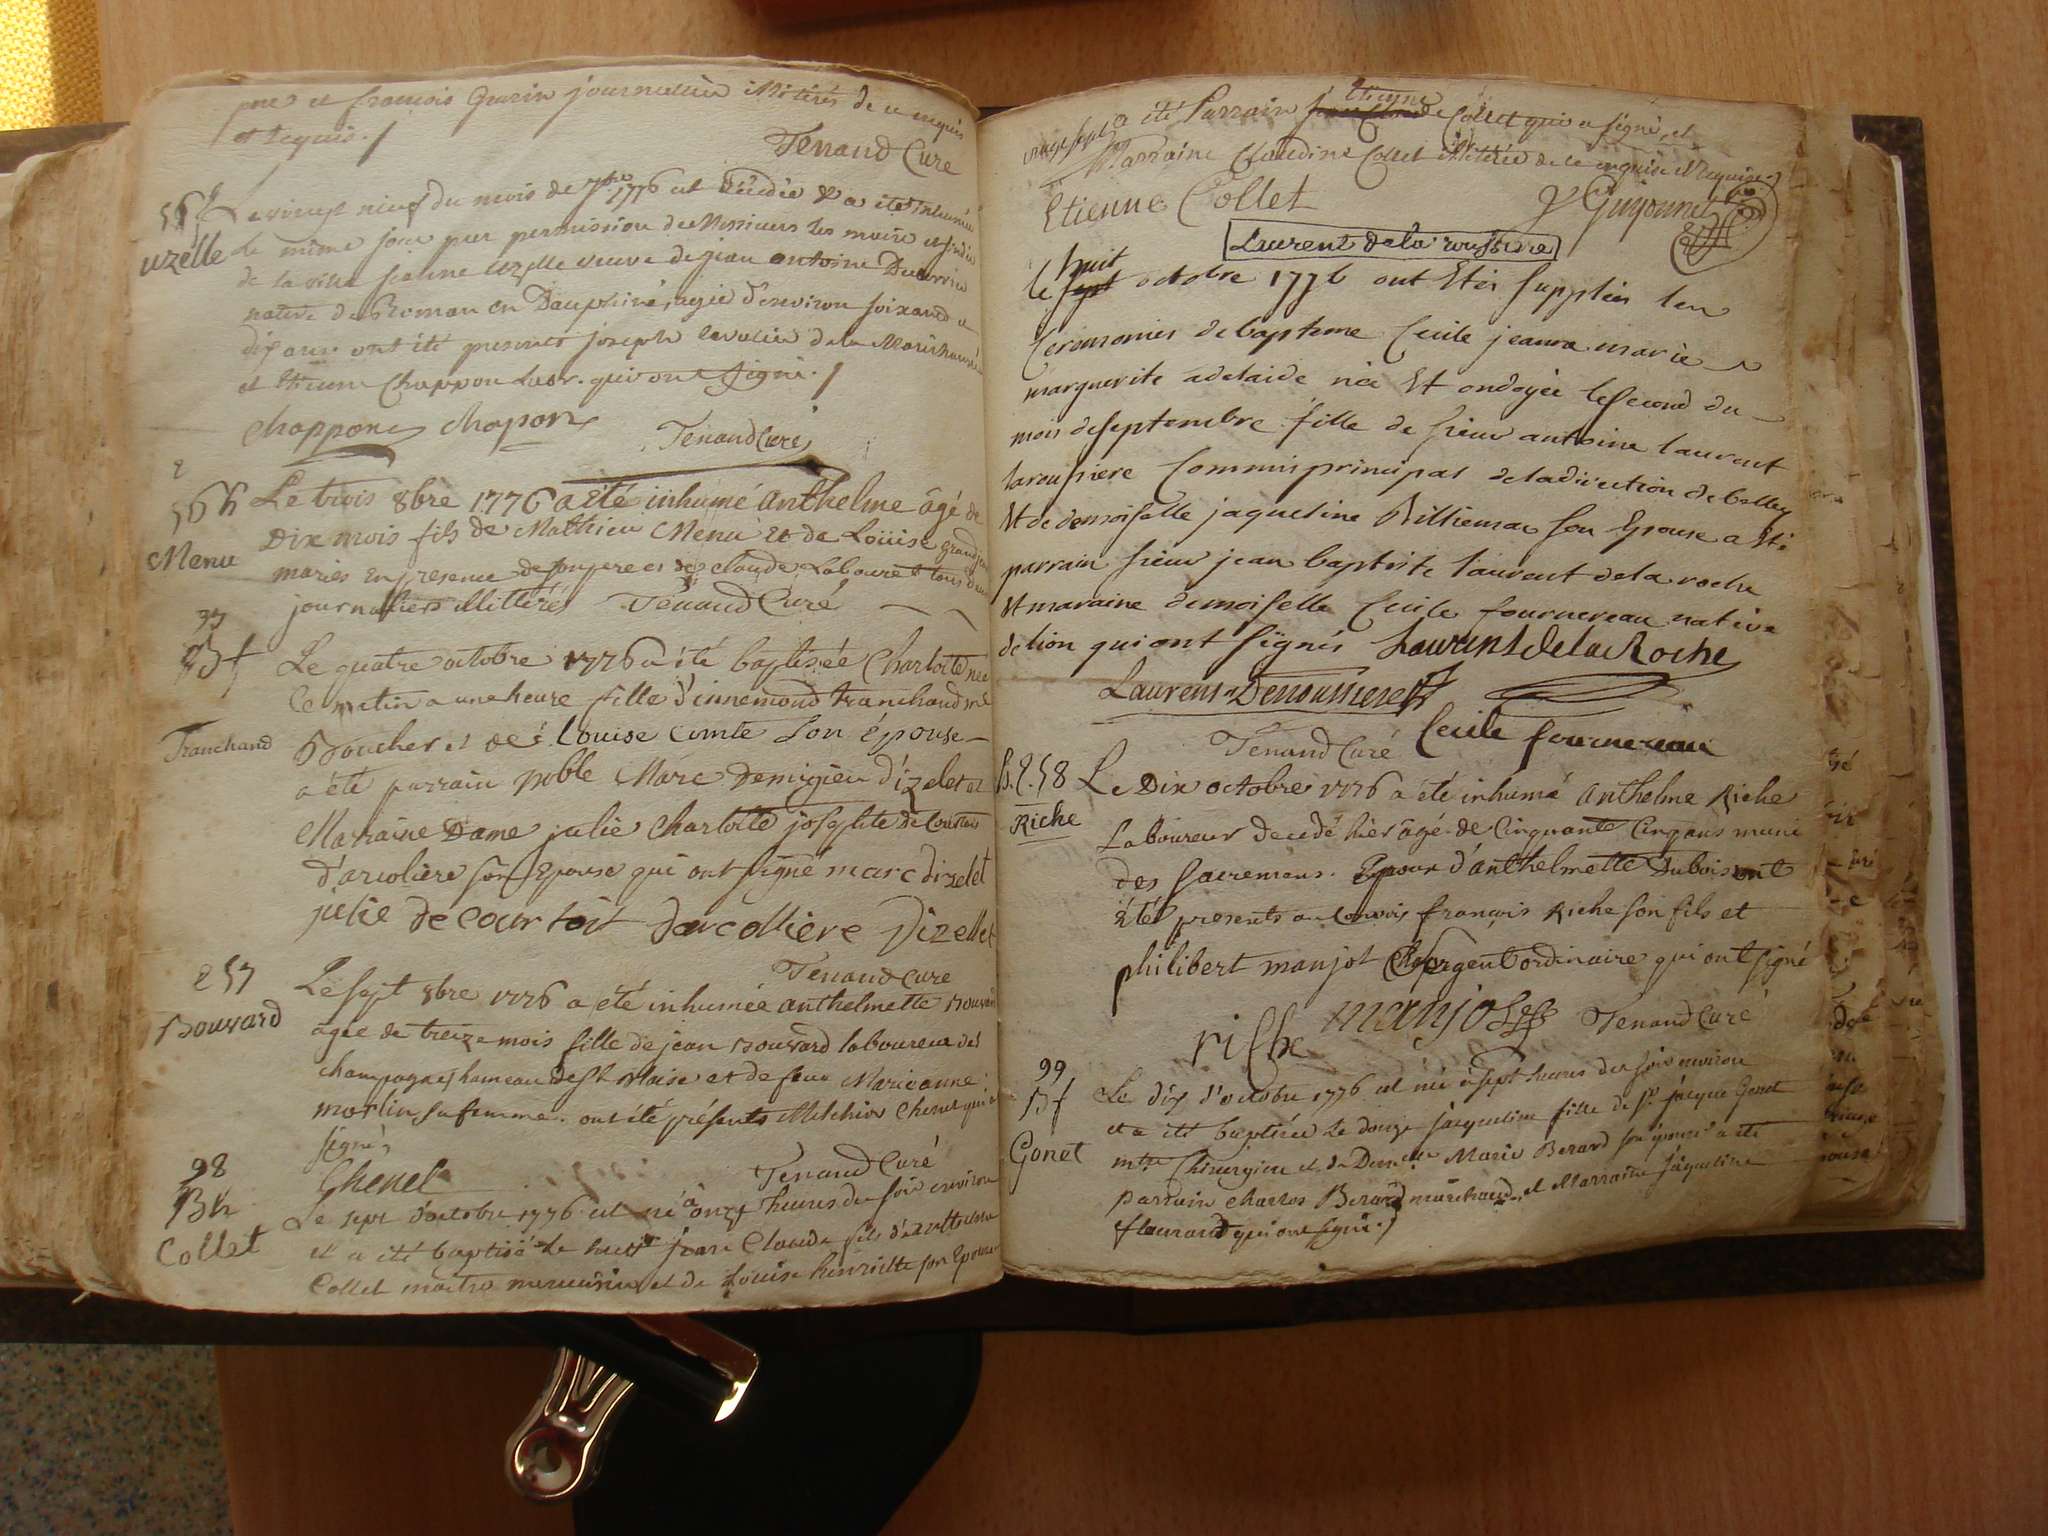 pere et francois Guerin journalier illitérés de ce enquis
et requis./.
Tenand Curé
Le vingt neuf du mois de 7bre 1776 est décédée & a été inhumée
uzelle
le même jour par permission de Messieurs les maire et sindic
de la ville jeanne uzelle veuve de jean antoine
native de Roman en Dauphiné, agée d'environ soixante et
dix ans ont été presents joseph cavalier de la Maréchaussée
et Etienne Chappon qui ont signé./.
Chappon chapon
Tenand Curé
Le trois 8bre 1776 a été inhumé Anthelme âgé de
Menu
Dix mois fils de Mathieu Menu Et de Loüise grandjean
mariés En presence de son pere et de claude Laboure tous deux
journaliers illittérés Tenand Curé
97
Bf
Le quatre octobre 1776 a été baptisée Charlotte née
le matin a une heure fille d'innemond tranchand me
Tranchand
Boucher et de Louise Comte Son Épouse
a été parrain noble Marc Demigieu d'izelet et
Marraine Dame julie Charlotte josephte de Courtois
d'arcolière son Epouse qui ont signé marc dizelet
julie de courtoit darcolliere Dizellet
Tenand Curé
257
Le sept 8bre 1776 a été inhumée anthelmette Bouvard
Bouvard
agée de treize mois fille de jean Bouvard laboureur des
champagnes hameau de St Blaise et de feue Marianne
morlin sa femme. ont été présents Melchior Chenet qui a
signé,
Chenet
Tenand Curé
98
Bh
Le sept d'octobre 1776 est né à onze heures du soir environ
Collet
et a été baptisé le huit jean Claude fils d'
Collet maitre menuisier et de Louise henriette son Epouse
a été Parrain Etienne Collet qui a signé, et
Marraine Claudine Collet illitérée de ce enquise et requise./.
Etienne Collet
Guyonnet
Laurent de la roussiere
le huit octobre 1776 ont Étés supplées les
Ceremonies de bapteme Cecile jeanne marie
marguerite adelaide née Et ondoyée le second du
mois de septembre fille de sieur antoine laurent
laroussiere Commis principal de la direction de belley
Et de demoiselle jaqueline Billiemaz son Epouse a Été
parrain sieur jean baptiste laurent de la roche
Et maraine demoiselle Cecile fournereau native
de lion qui ont signés Laurent de la Roche
Laurent Deroussiere
Cecile fournereau
Tenand Curé
258
Le Dix octobre 1776 a été inhumé Anthelme Riche
Riche
Laboureur decedé hier âgé de Cinquante Cinq ans muni
des Sacremens. Epoux d'anthelmette Dubois ont
Été presents au Convois françois Riche son fils et
philibert manjot sergent ordinaire qui ont signé
riche manjot Tenand Curé
99
Bf
Le dix d'octobre 1776 est née à sept heures du soir environ
et a été baptisée le douze jaqueline fille de Sr jacque Gonet
Gonet
mtre Chirurgien et de Demelle Marie Berard son épouse a été
parrain Charles Berard marchand, et Marraine jaqueline
flaurand qui ont signé./.